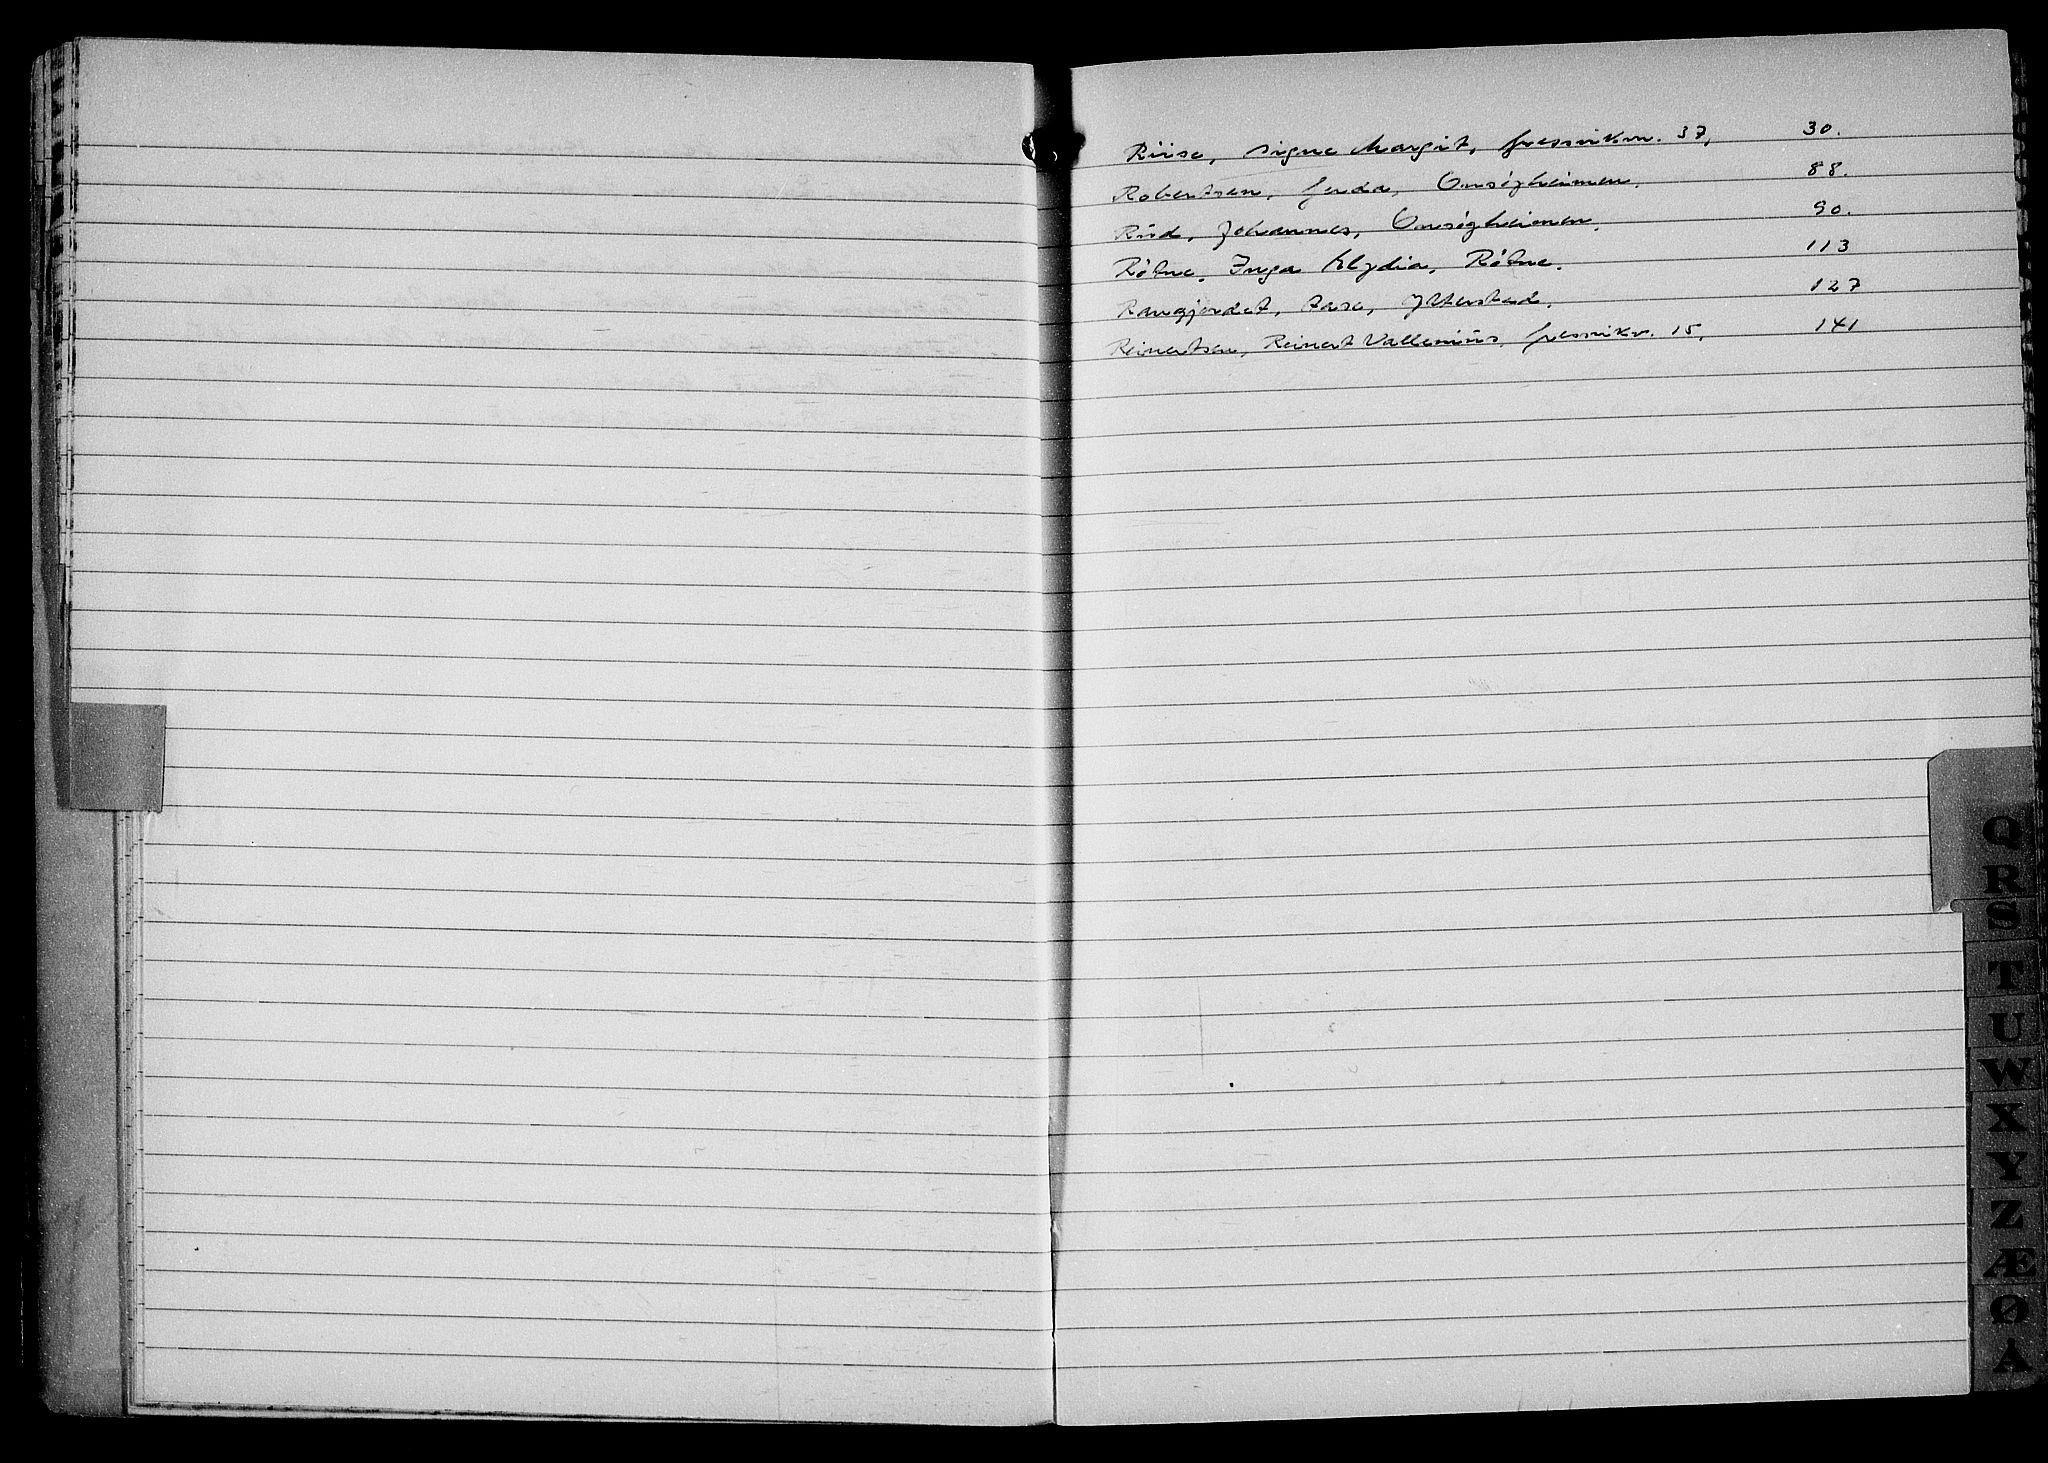 Riise, Signe Margit, Gressvikvn. 37, 30.
Robertsen, Gerda, Onsøyheimen. 88.
Rud, Johannes, Onsøyheimen. 90.
Røtne, Inga Elydia, Røtne. 113
Raugjordet, Aase, Ytterstad. 127
Reinertsen, Reinert Valleniüs, Gressvikv. 15, 141
Q
R
S
T
U
W
X
Y
Z
Æ
Ø
Å